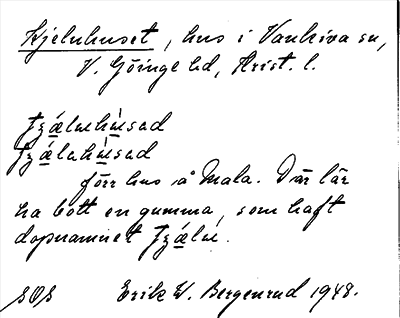 Kjelnhuset, hus i Vankiva sn,
V. Göinge hd, Krist. l.
förr hus å Mala. Där lär
ha bott en gumma, som haft
dopnamnet
SOS Erik W. Bergenrud 1948.